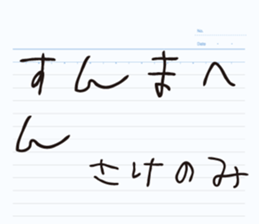 No.
Date
すんまへ
ん
さけのみ